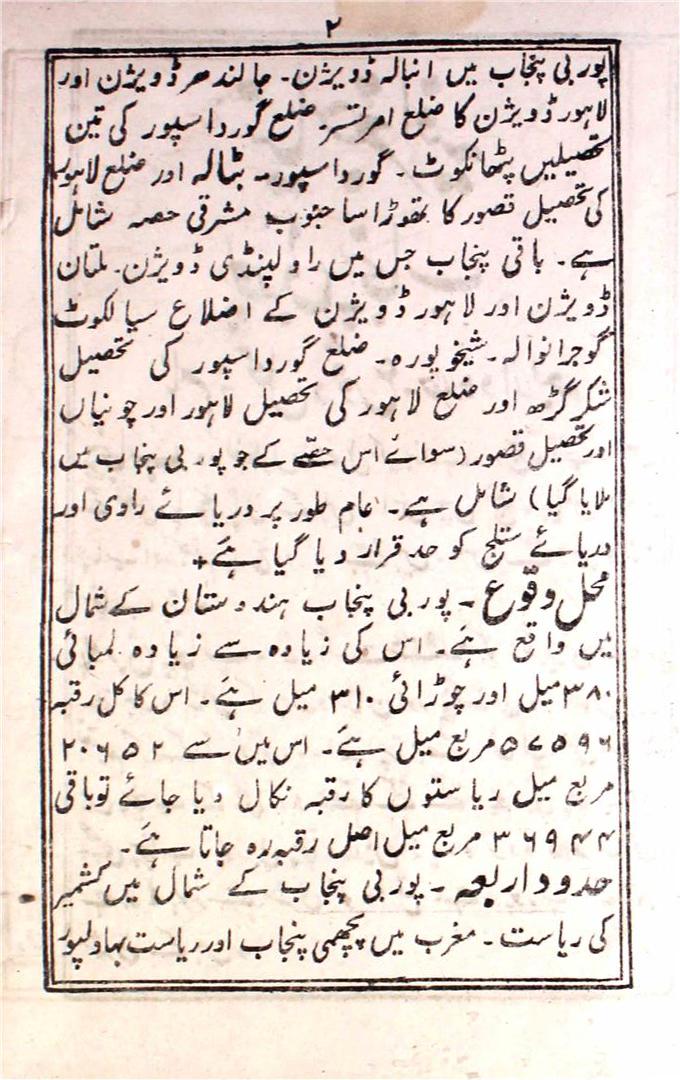 ۲
پوربی پنجاب میں انبالہ ڈویژن۔ جالندھر ڈویژن اور
لاہور ڈویژن کا ضلع امرتسر۔ ضلع گورداسپور کی تین
تحصیلیں پٹھانکوٹ۔ گورداسپور۔ بٹالہ اور ضلع لاہور
کی تحصیل قصور کا تھوڑا سا جنوب مشرقی حصہ شامل
ہے۔ باقی پنجاب جس میں راولپنڈی ڈویژن۔ ملتان
ڈویژن اور لاہور ڈویژن کے اضلاع سیالکوٹ
گوجرانوالہ۔ شیخوپورہ۔ ضلع گورداسپور کی تحصیل
شکر گڑھ اور ضلع لاہور کی تحصیل لاہور اور چونیاں
اور تحصیل قصور (سوائے اس حصّے کے جو پوربی پنجاب میں
ملایا گیا) شامل ہے۔ عام طور پر دریائے راوی اور
دریائے ستلج کو حد قرار دیا گیا ہے+
محل وقوع۔ پوربی پنجاب ہندوستان کے شمال
میں واقع ہے۔ اس کی زیادہ سے زیادہ لمبائی
۳۸۰ میل اور چوڑائی ۳۱۰ میل ہے۔ اس کا کل رقبہ
۵۷۵۹۶ مربع میل ہے۔ اس میں سے ۲۰۶۵۲
مربع میل ریاستوں کا رقبہ نکال دیا جائے تو باقی
۳۶۹۴۴ مربع میل اصل رقبہ رہ جاتا ہے۔
حدود اربعہ۔ پوربی پنجاب کے شمال میں کشمیر
کی ریاست۔ مغرب میں پچھمی پنجاب اور ریاست بہاولپور